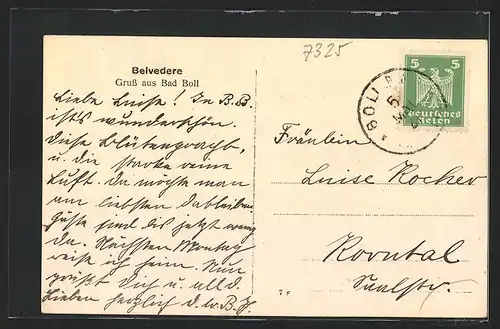 7325
Belvedere
Gruß aus Bad Boll
Liebe Luise! In B.B.
ist's wunderschön.
Diese Blütenpracht,
u. die starke reine
Luft. Da möchte man
am liebsten dableiben
Gäste sind bis jetzt wenig
da. Nächsten Montag
reise ich heim. Nun
grüßt Dich u. all d.
Lieben herzlich d.
5 5
Deutsches
Reich
BOLL
Fräulein
Luise Kocher
Korntal
Saalstr.